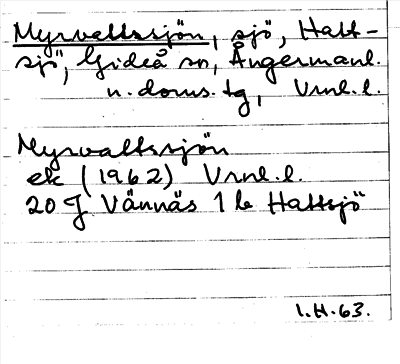 Myrvattssjön, sjö, Hatt-
sjö, Gideå sn, Ångermanl.
n. doms. tg, Vrnl. l.
Myrvattssjön
ek (1962) Vrnl. l.
20 J Vännäs 1 b Hattsjö
I.H.63.